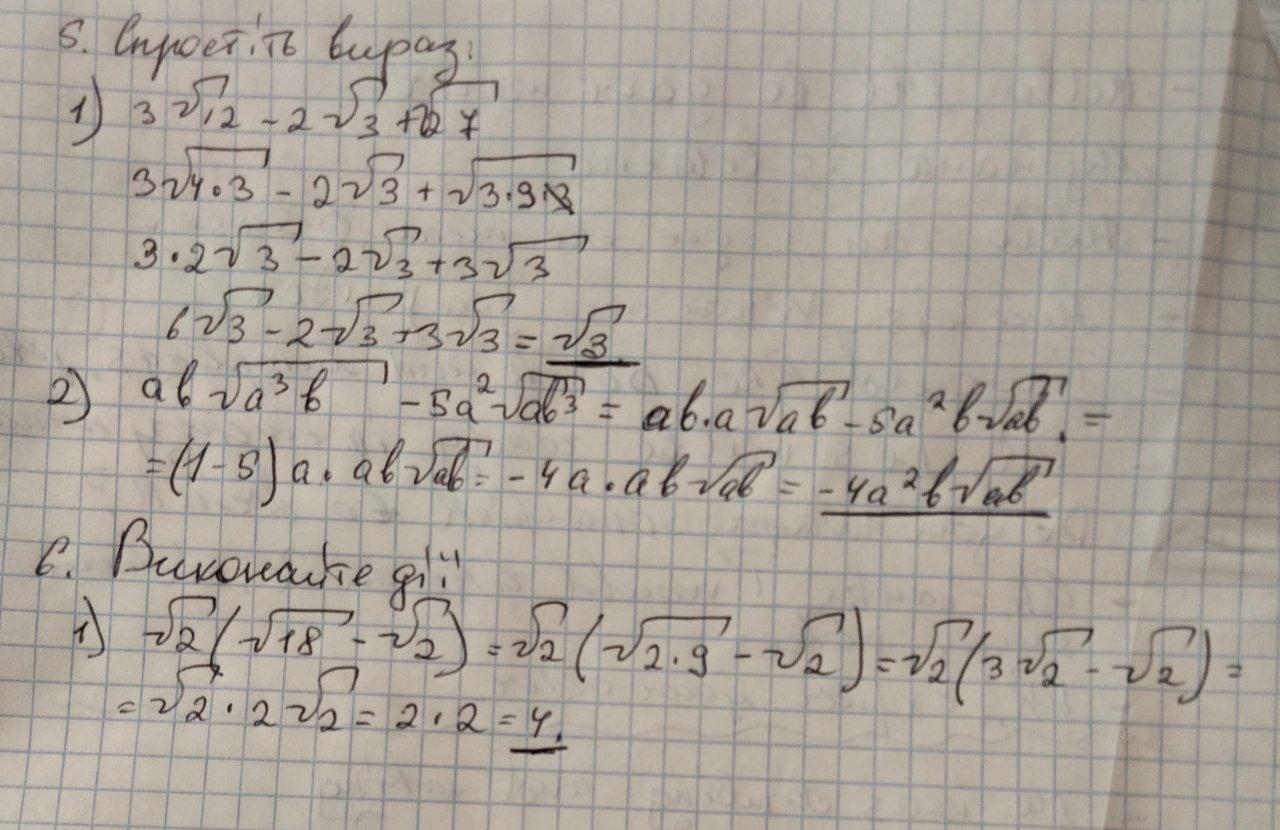 5. Спростіть вираз:
1) 3√12 - 2√3 + √27
3√4·3 - 2√3 + √3·9
3·2√3 - 2√3 + 3√3
6√3 - 2√3 + 3√3 = √3
2) ab√a³b - 5a²√ab³ = ab·a√ab - 5a²b√ab. =
= (1-5) a·ab√ab = -4a·ab√ab = -4a²b√ab
6. Виконайте дії:
1) √2(√18 - √2) = √2(√2·9 - √2) = √2(3√2 - √2) =
= √2·2√2 = 2·2 = 4.